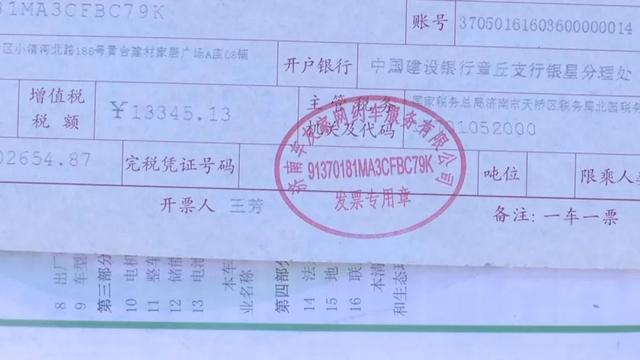 91MA3CFBC79K
账号
37050161603600000014
区小清河北路188号黄台建材家居广场A座08铺
开户银行
中国建设银行章丘支行银星分理处
增值税
税额
￥13345.13
主管税务
机关及代码
国家税务总局济南市天桥区税务局北园税务
1052000
02654.87
完税凭证号码
吨位
限乘人
网约车服务有限公司
91370181MA3CFBC79K
发票专用章
开票人
王芳
备注:一车一票
8 出厂
9 车型
第三部分
10 电机
11 整车
12 储能
13 电池
本车
业名称
第四部分
14 法
15 地
16 联
本清
和生态环